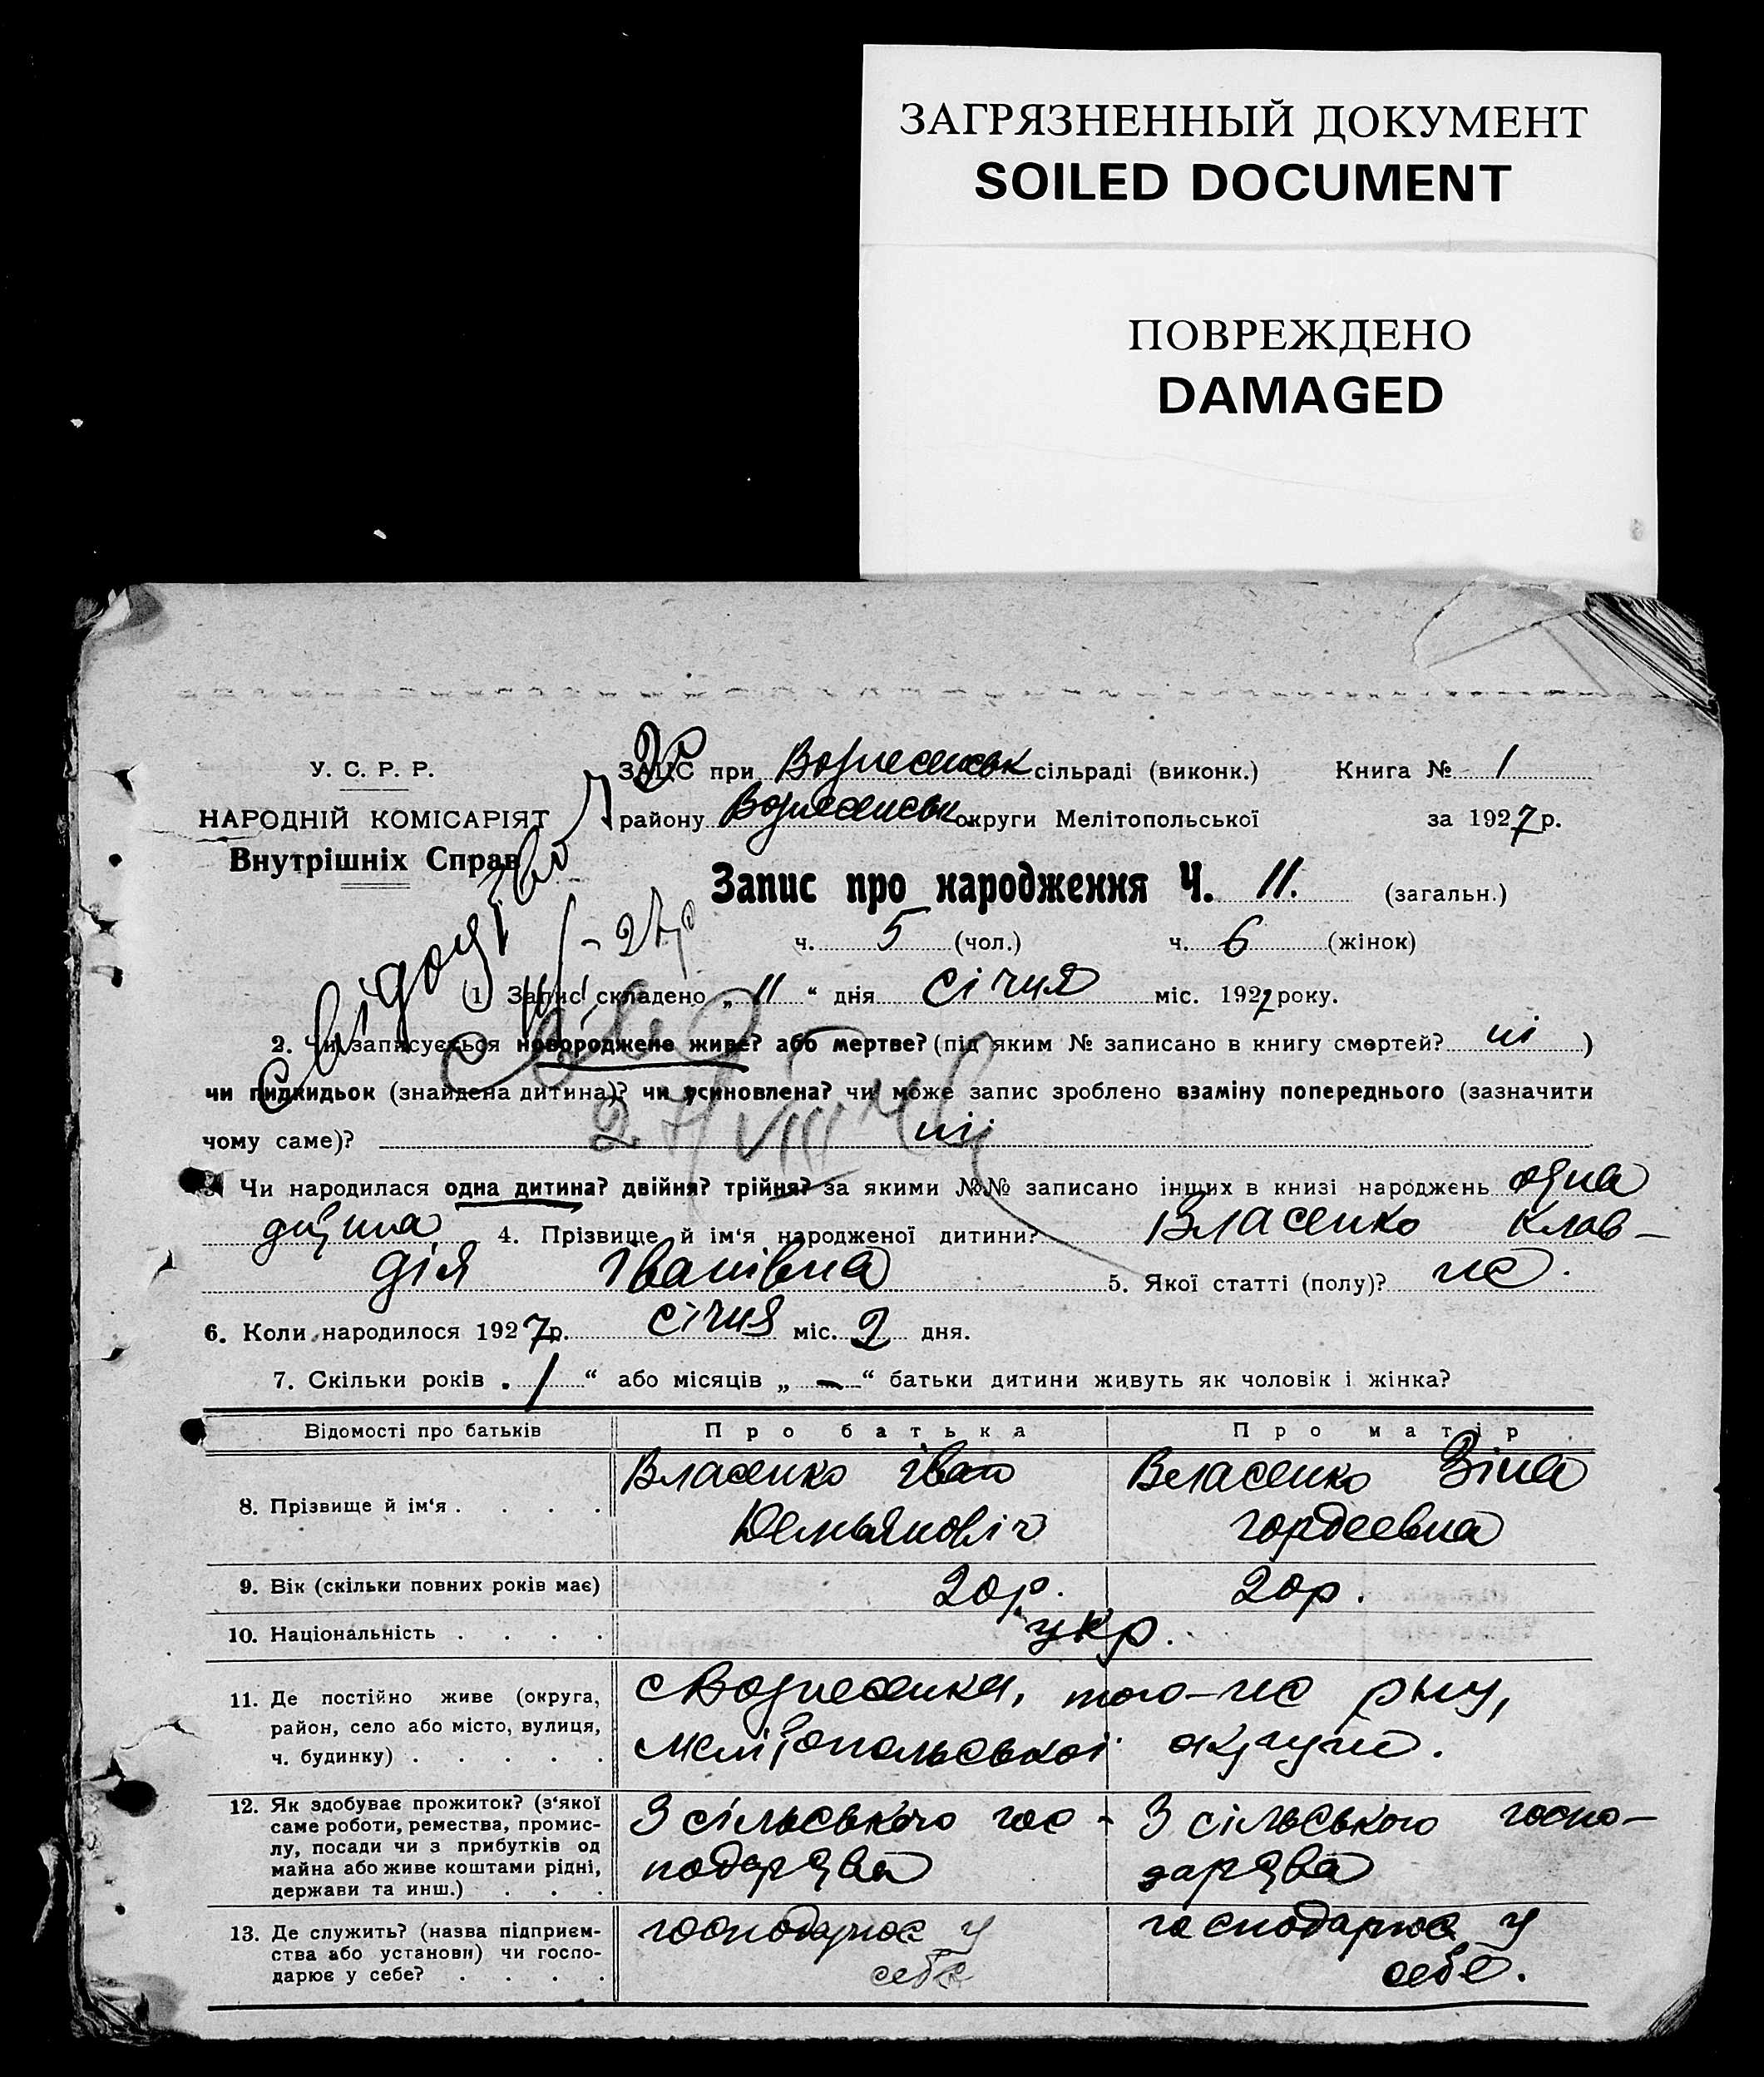 ЗАГРЯЗНЕННЫЙ ДОКУМЕНТ
SOILED DOCUMENT
ПОВРЕЖДЕНО
DAMAGED
У. С. Р. Р.
НАРОДНІЙ КОМІСАРІЯТ
Внутрішніх Справ
ЗАЦС при Вознесенськ сільраді (виконк.) Книга № 1
району Вознесенськ округи Мелітопольської за 1927 р.
Запис про народження Ч. 11. (загальн.)
ч. 5 (чол.) ч. 6 (жінок)
1. Запис складено „ 11 “ дня січня міс. 1927 року.
2. Чи записується новороджене живе? або мертве? (під яким № записано в книгу смертей? ні )
чи підкидьок (знайдена дитина)? чи усиновлена? чи може запис зроблено взаміну попереднього (зазначити
чому саме)? ні
27/VIII
3. Чи народилася одна дитина? двійня? трійня? за якими №№ записано інших в книзі народжень одна
дитина 4. Прізвище й ім'я народженої дитини? Власенко Клав-
дія Іванівна 5. Якої статті (полу)? ж.
6. Коли народилося 1927 р. січня міс. 2 дня.
7. Скільки років „ 1 “ або місяців „ - “ батьки дитини живуть як чоловік і жінка?
Відомості про батьків Про батька Про матір
8. Прізвище й ім'я . . . . Власенко Іван Демьянович Власенко Зіна Гордеевна
9. Вік (скільки повних років має) 20 р. 20 р.
10. Національність . . . . укр.
11. Де постійно живе (округа,
район, село або місто, вулиця,
ч. будинку) . . . . .
с Вознесенка, того-же р-ну,
Мелітопольської округи.
12. Як здобуває прожиток? (з'якої
саме роботи, ремества, промис-
лу, посади чи з прибутків од
майна або живе коштами рідні,
держави та инш.) . . .
З сільського гос-
подарства
З сільського госпо-
дарства
13. Де служить? (назва підприєм-
ства або установи) чи госпо-
дарює у себе? . . . .
господарює у
себе
господарює у
себе.